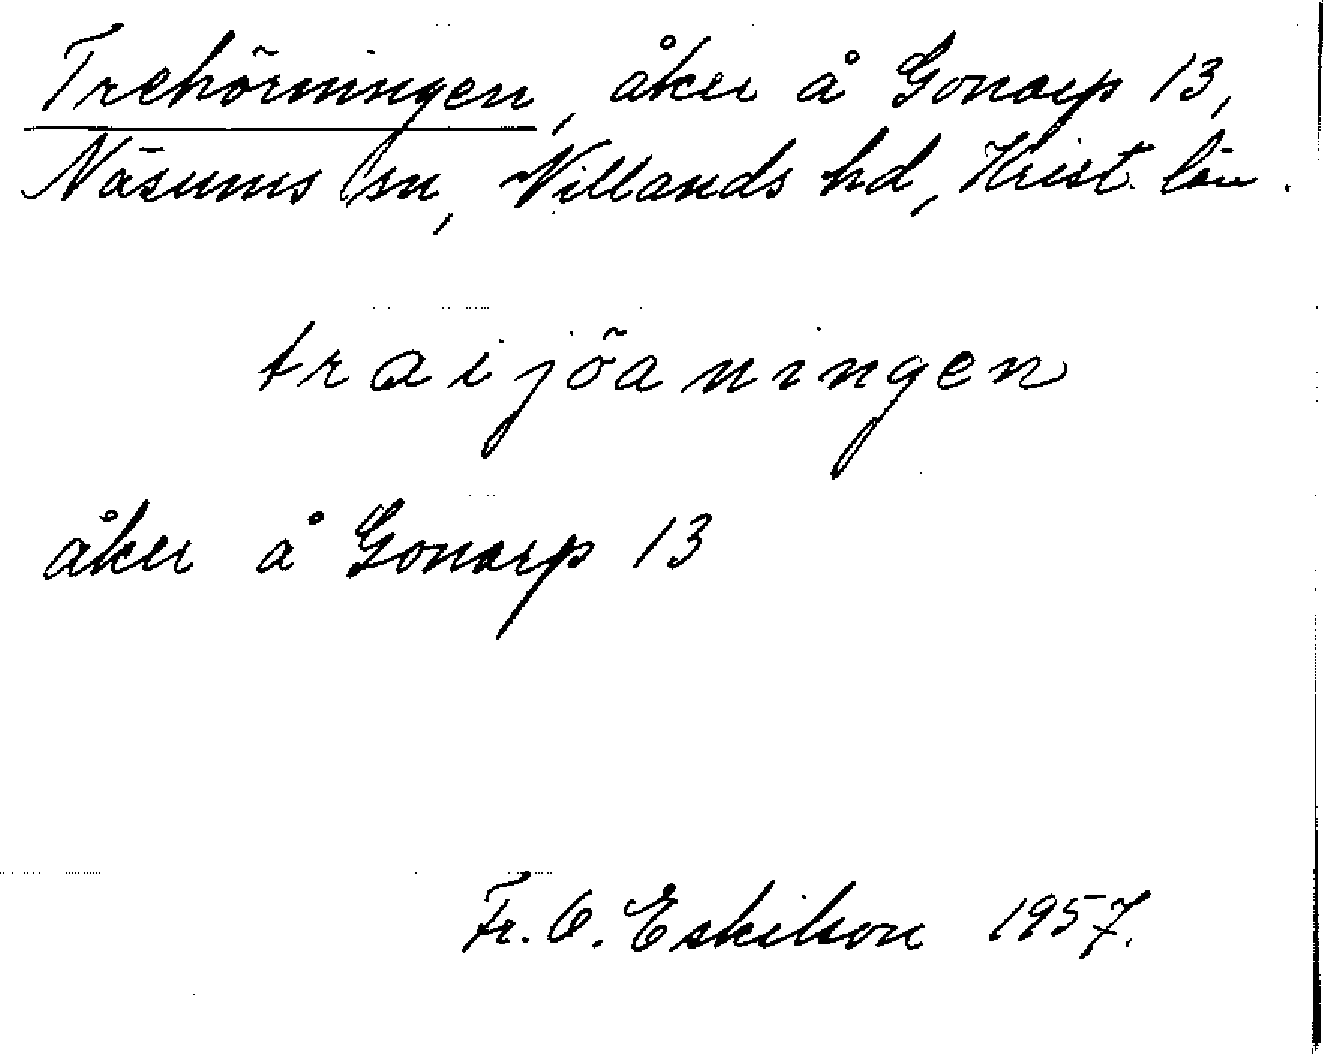 Trehörningen, åker å Gonarp 13,
Näsums sn, Villands hd, Krist. län.
traijöaningen
åker å Gonarp 13
Fr. O. Eskilson 1957.